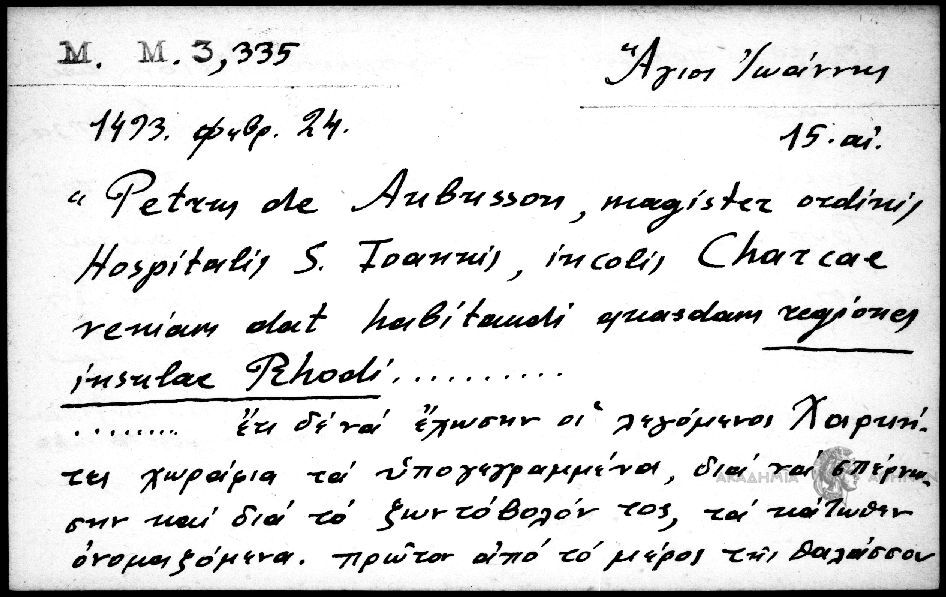 M. M. 3,335
Ἅγιος Ἰωάννης
1493. φεβρ. 24.
15. αἰ.
“Petrus de Aubusson, magister ordinis
Hospitalis S. Ioannis, incolis Charcae
veniam dat habitandi quasdam regiones
insulae Rhodi..........
........ ἔτι δέ νά ἔχωσην οἱ λεγόμενοι Χαρκῆ-
τες χωράφια τά ὑπογεγραμμένα, διά νά σπέρνω-
σην καί διά τό ζωντόβολόν τος, τά κάτωθεν
ὀνομαζόμενα. πρῶτον ἀπό τό μέρος τῆς θαλάσσου
ΑΚΑΔΗΜΙΑ